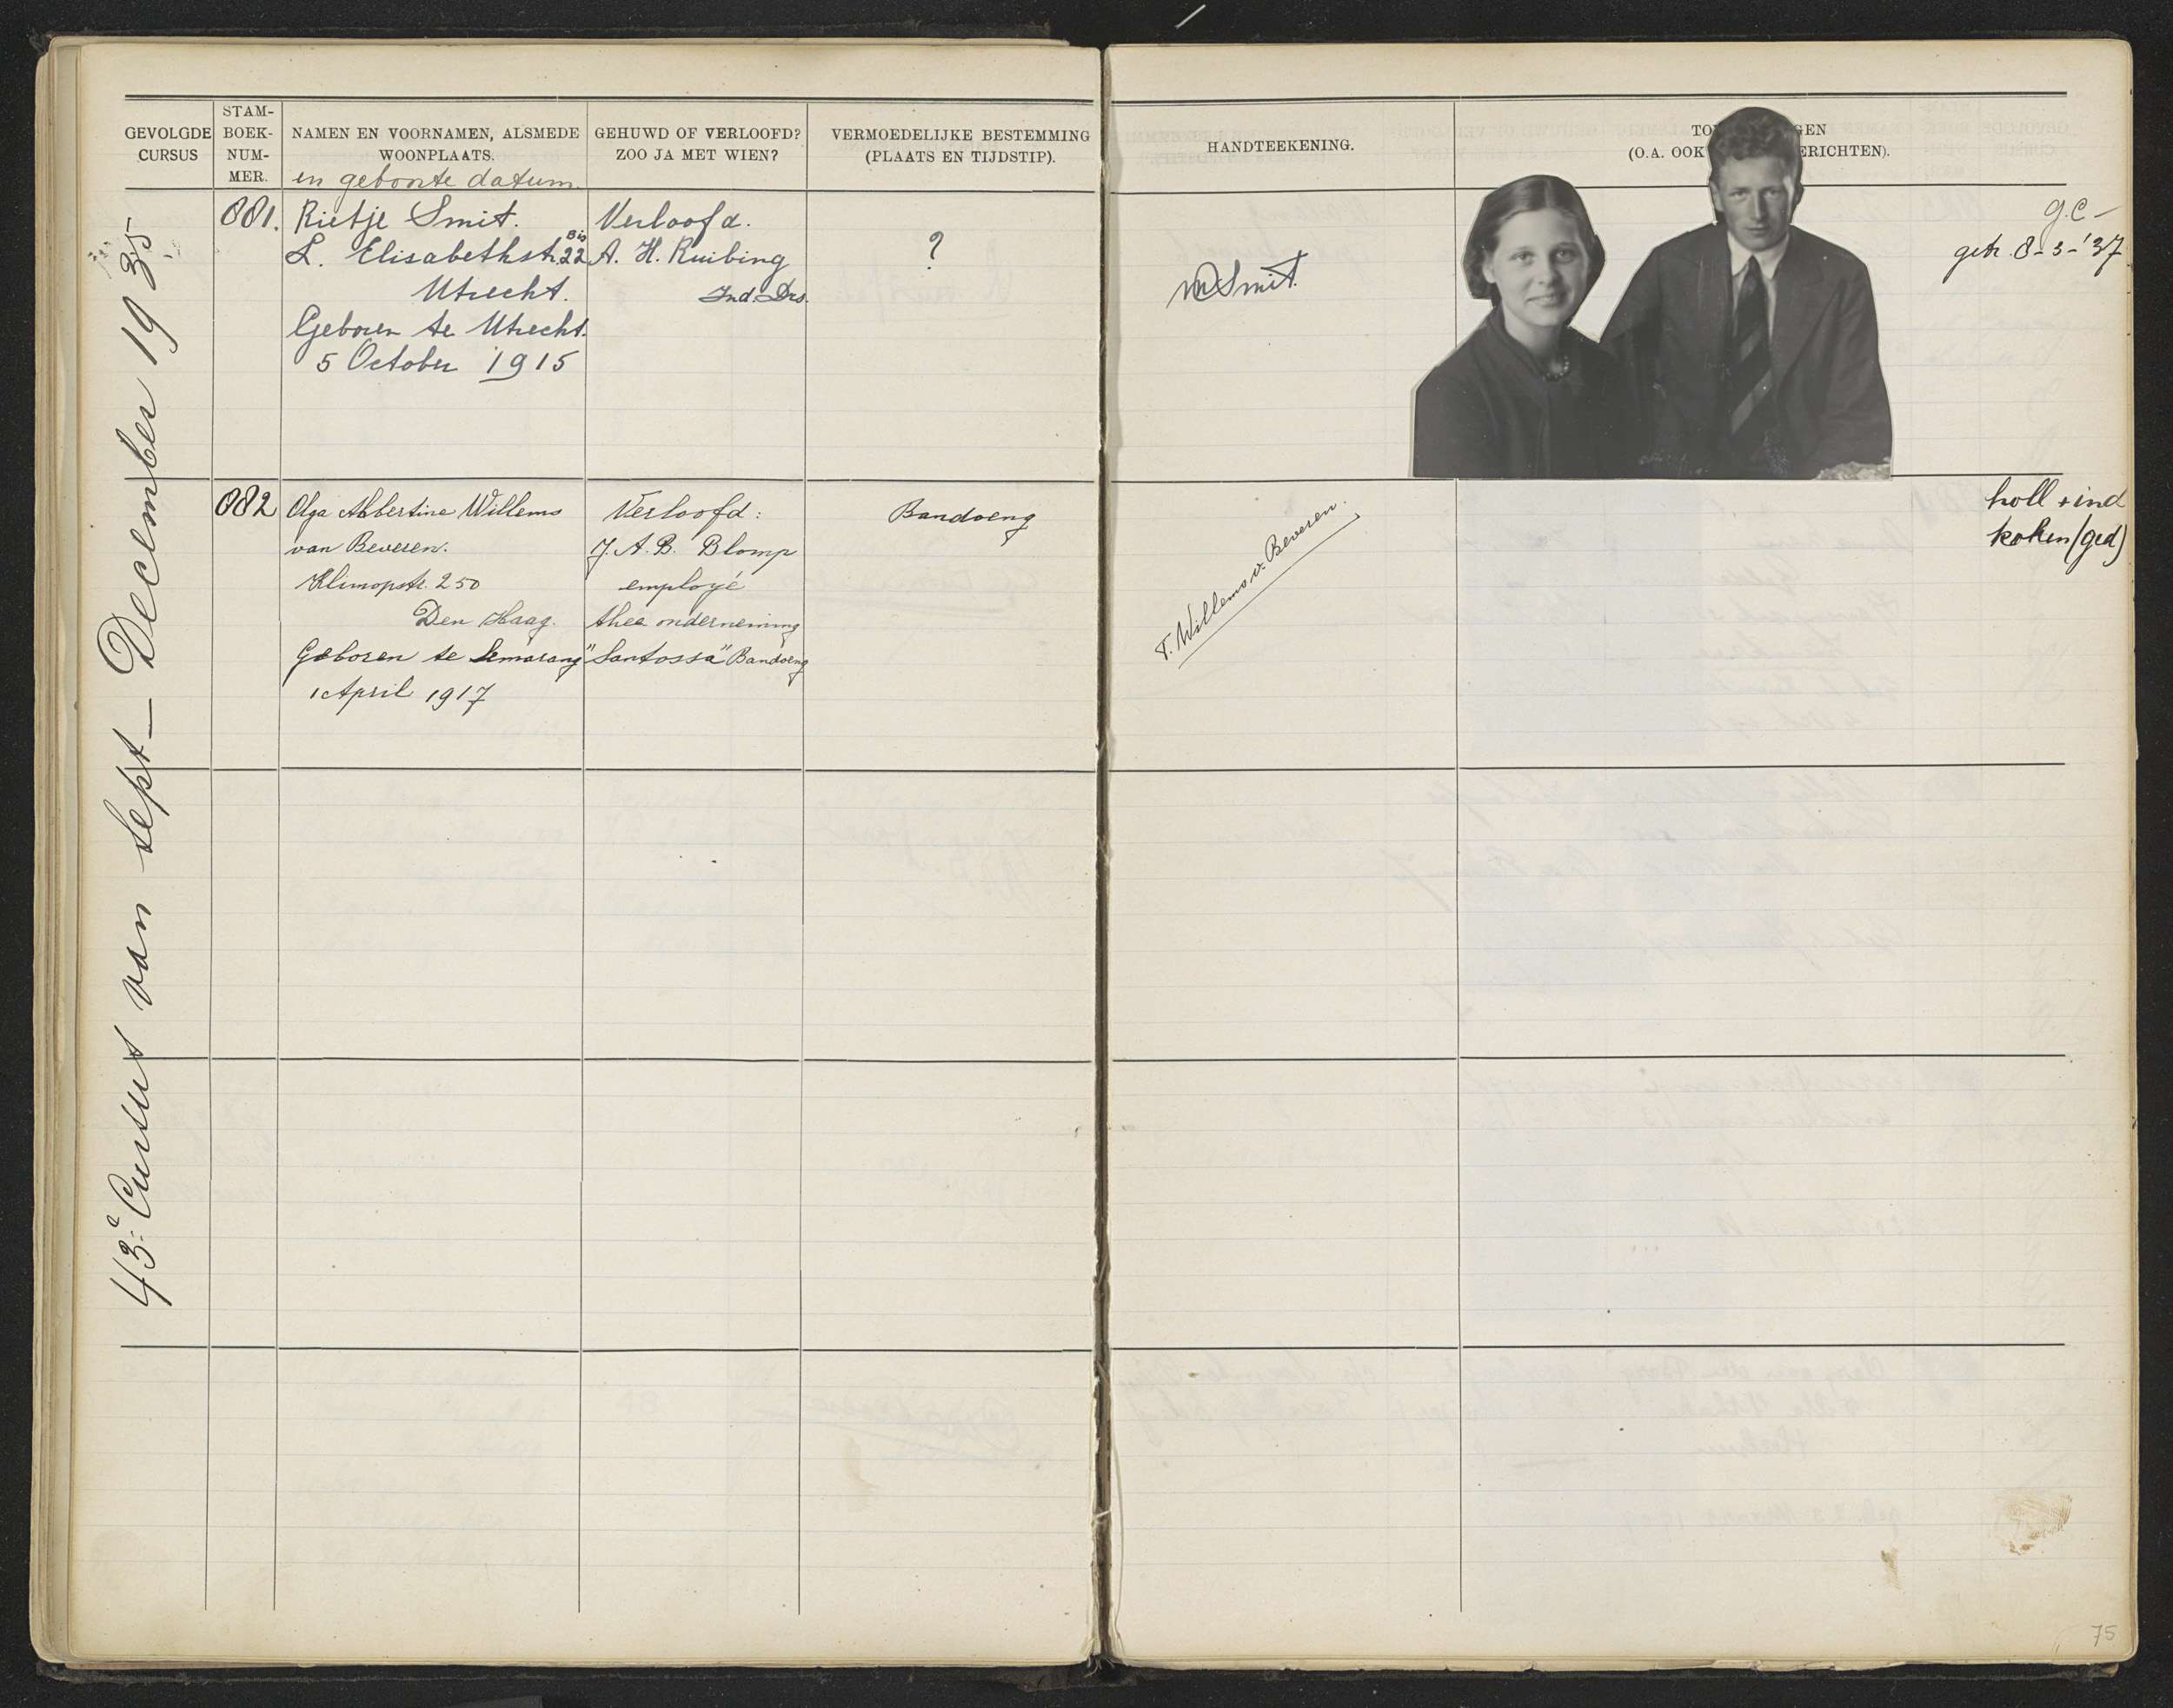 GEVOLGDE CURSUS
STAM-BOEK-NUM-MER.
NAMEN EN VOORNAMEN, ALSMEDE WOONPLAATS.
en geboorte datum.
GEHUWD OF VERLOOFD? ZOO JA MET WIEN?
VERMOEDELIJKE BESTEMMING (PLAATS EN TIJDSTIP).
HANDTEEKENING.
(O.A. OOK ERICHTEN).
43e Cursus van Sept - December 1935
881.
Rietje Smit.
L. Elisabethstr. 22 Bis
Utrecht.
Geboren te Utrecht.
5 October 1915
Verloofd.
A. H. Ruibing
Ind. Drs.
?
M Smit.
g.c -
getr. 8-3-'37
882
Olga Albertine Willems
van Beveren.
Klimopstr. 250
Den Haag.
Geboren te Semarang
1 April 1917
Verloofd:
J. A. B. Blomp
employé
thee onderneming
"Santossa" Bandoeng
Bandoeng
T. Willems v. Beveren.
holl + ind
koken (ged)
75